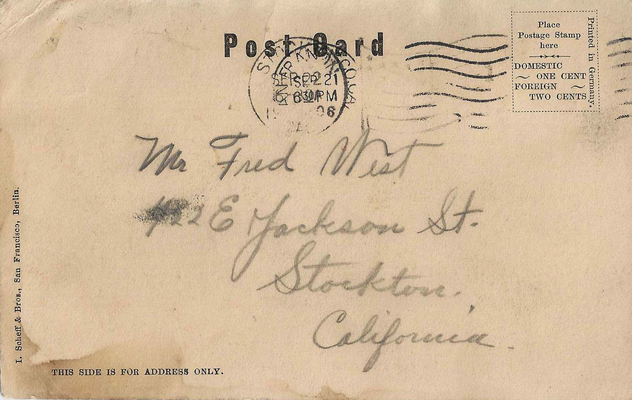 Post Card
SEP 21
630PM
06
Place
Postage Stamp
here
DOMESTIC
~ ONE CENT
FOREIGN ~
TWO CENTS
Printed in Germany.
Mr Fred West
422 E Jackson St.
Stockton.
California.
I. Scheff & Bros., San Francisco, Berlin.
THIS SIDE IS FOR ADDRESS ONLY.